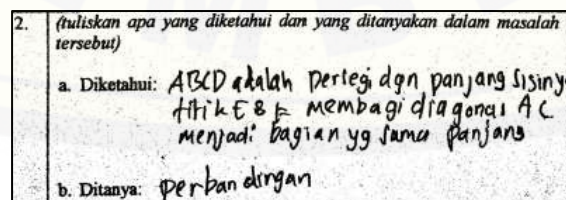 2. (tuliskan apa yang diketahui dan yang ditanyakan dalam masalah
tersebut)
a. Diketahui: ABCD adalah persegi dgn panjang sisiny
titik E & F membagi diagonal AC
menjadi bagian yg sama panjang
b. Ditanya: perbandingan